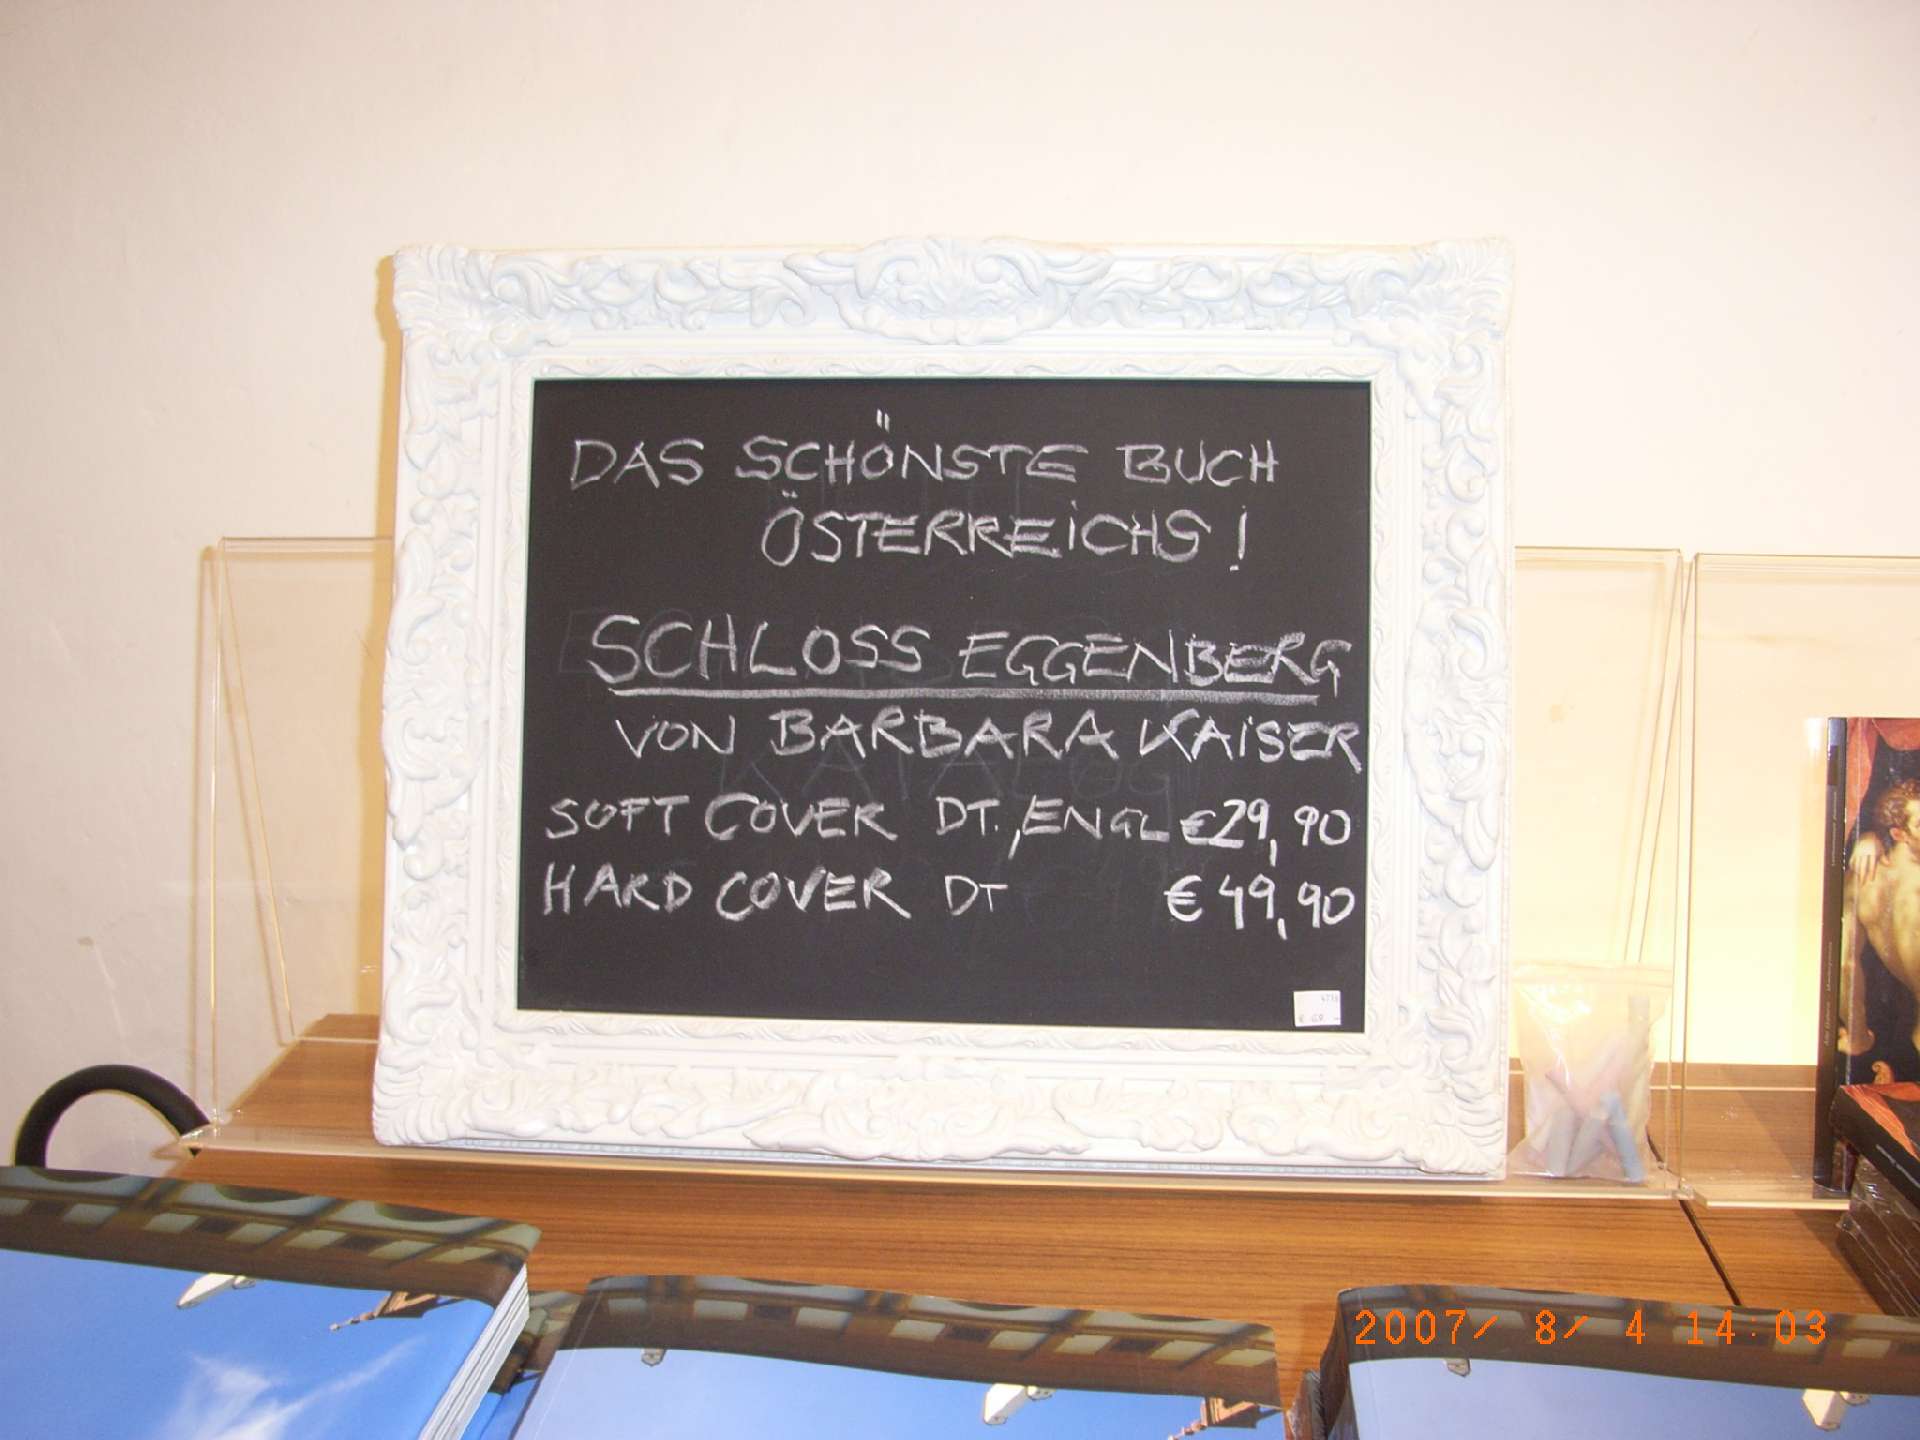 DAS SCHÖNSTE BUCH
ÖSTERREiCHS!
SCHLOSS EGGENBERG
VON BARBARA KAiSER
SOFT COVER DT., ENGL €29,90
HARD COVER DT €49,90
2007/ 8/ 4 14:03